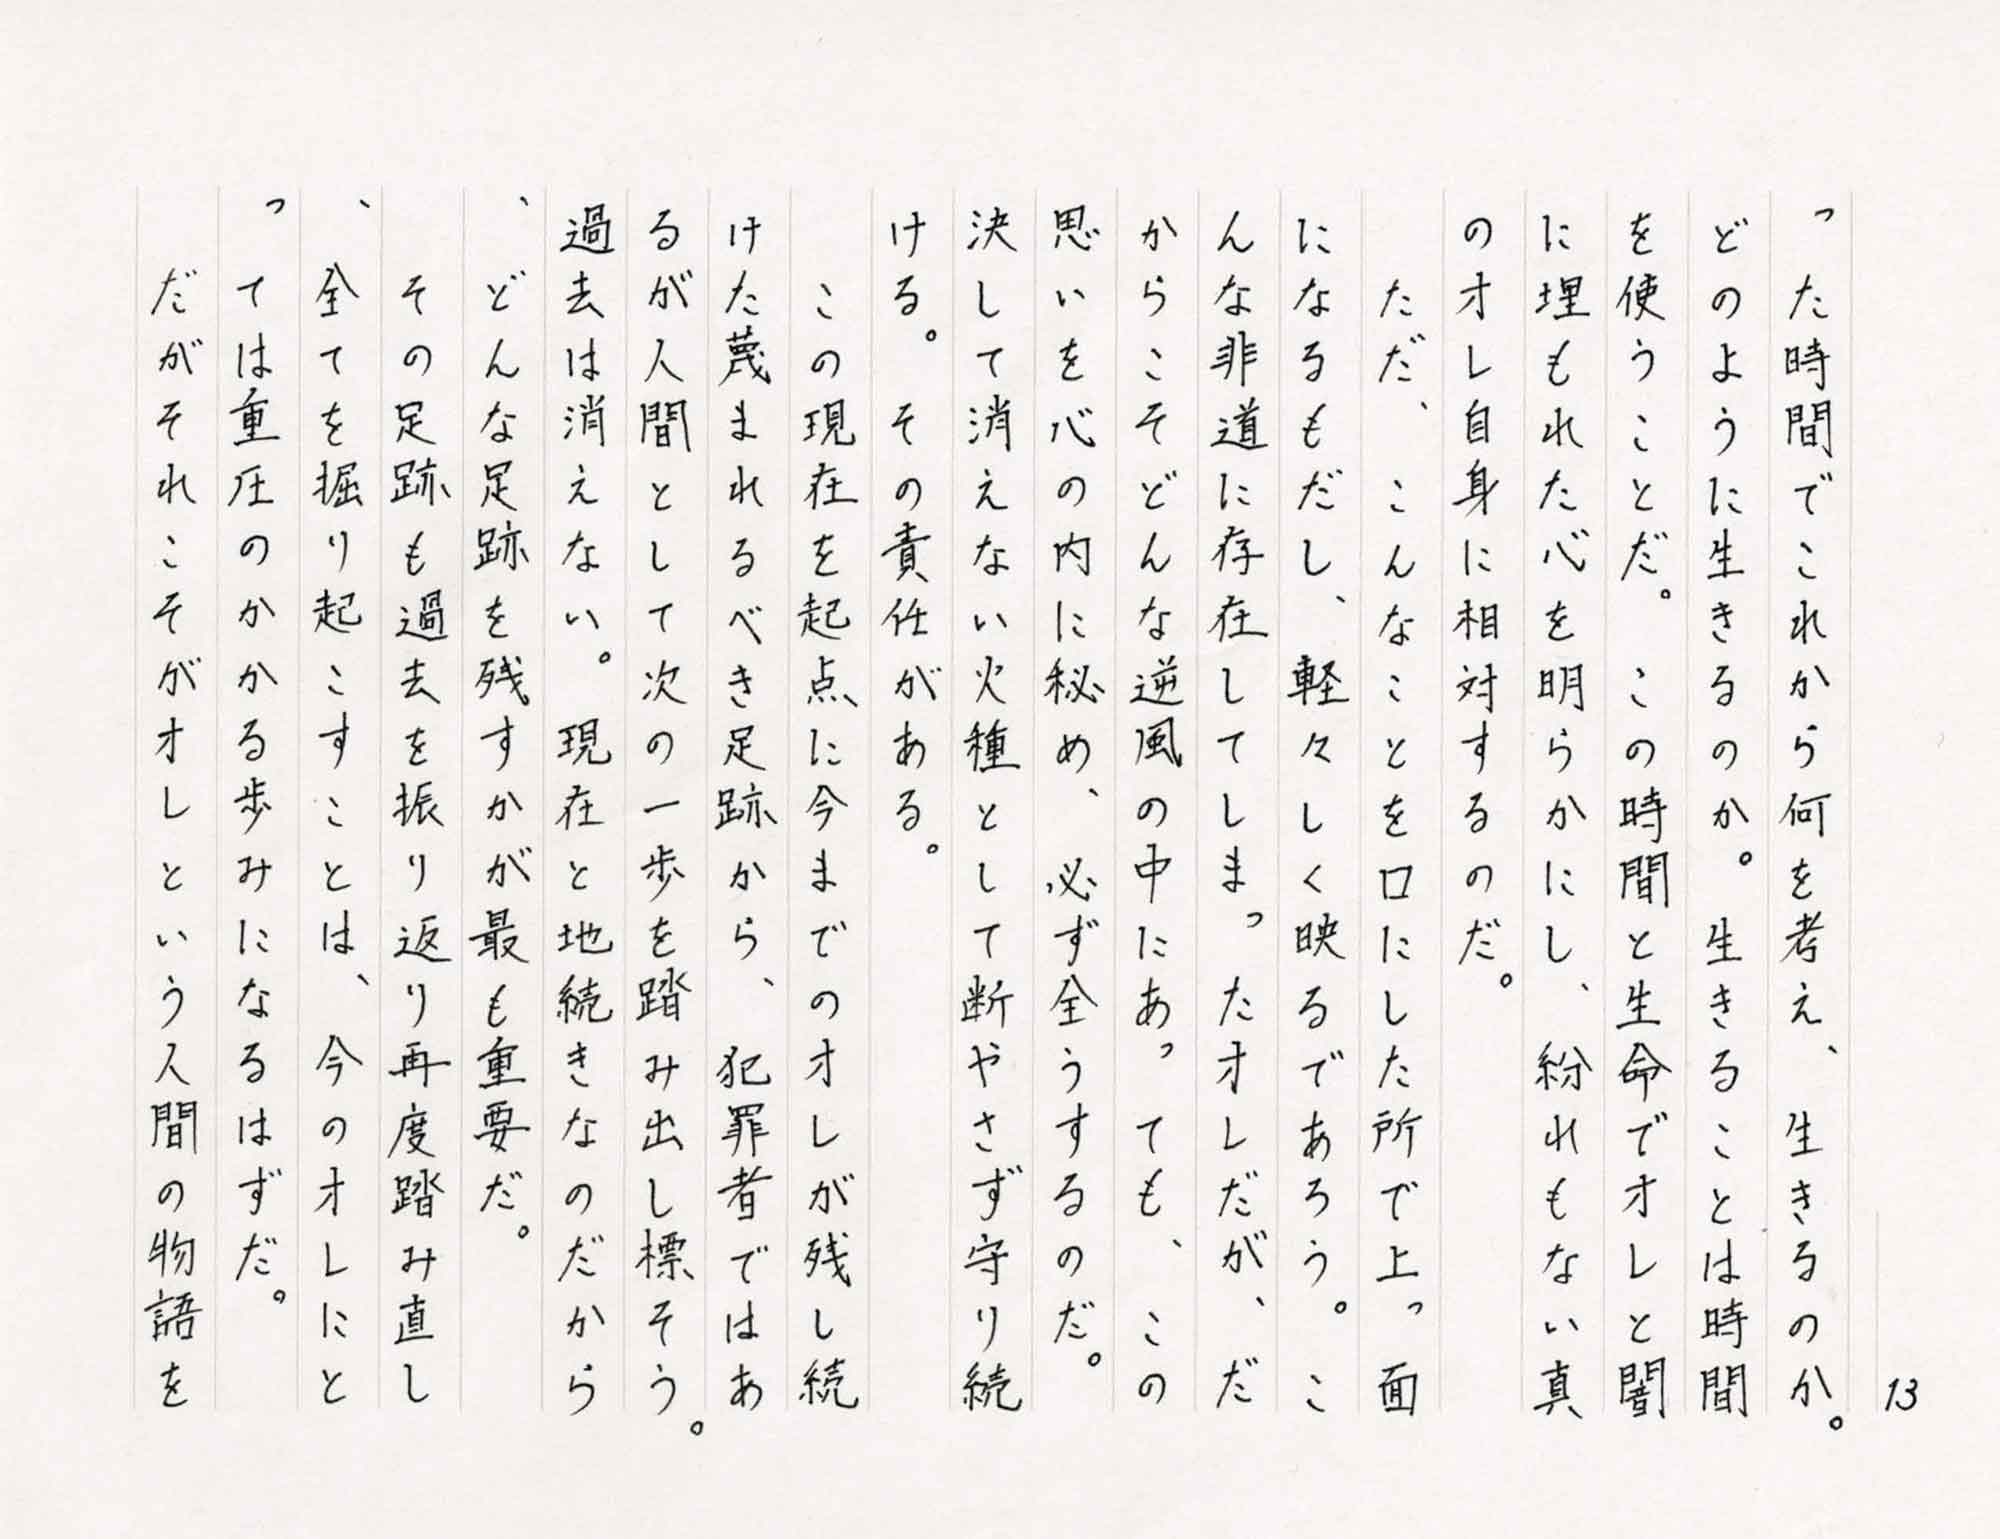 13
った時間でこれから何を考え、生きるのか。
どのように生きるのか。生きることは時間
を使うことだ。この時間と生命でオレと闇
に埋もれた心を明らかにし、紛れもない真
のオレ自身に相対するのだ。
ただ、こんなことを口にした所で上っ面
になるもだし、軽々しく映るであろう。こ
んな非道に存在してしまったオレだが、だ
からこそどんな逆風の中にあっても、この
思いを心の内に秘め、必ず全うするのだ。
決して消えない火種として断やさず守り続
ける。その責任がある。
この現在を起点に今までのオレが残し続
けた蔑まれるべき足跡から、犯罪者ではあ
るが人間として次の一歩を踏み出し標そう。
過去は消えない。現在と地続きなのだから
、どんな足跡を残すかが最も重要だ。
その足跡も過去を振り返り再度踏み直し
、全てを掘り起こすことは、今のオレにと
っては重圧のかかる歩みになるはずだ。
だがそれこそがオレという人間の物語を